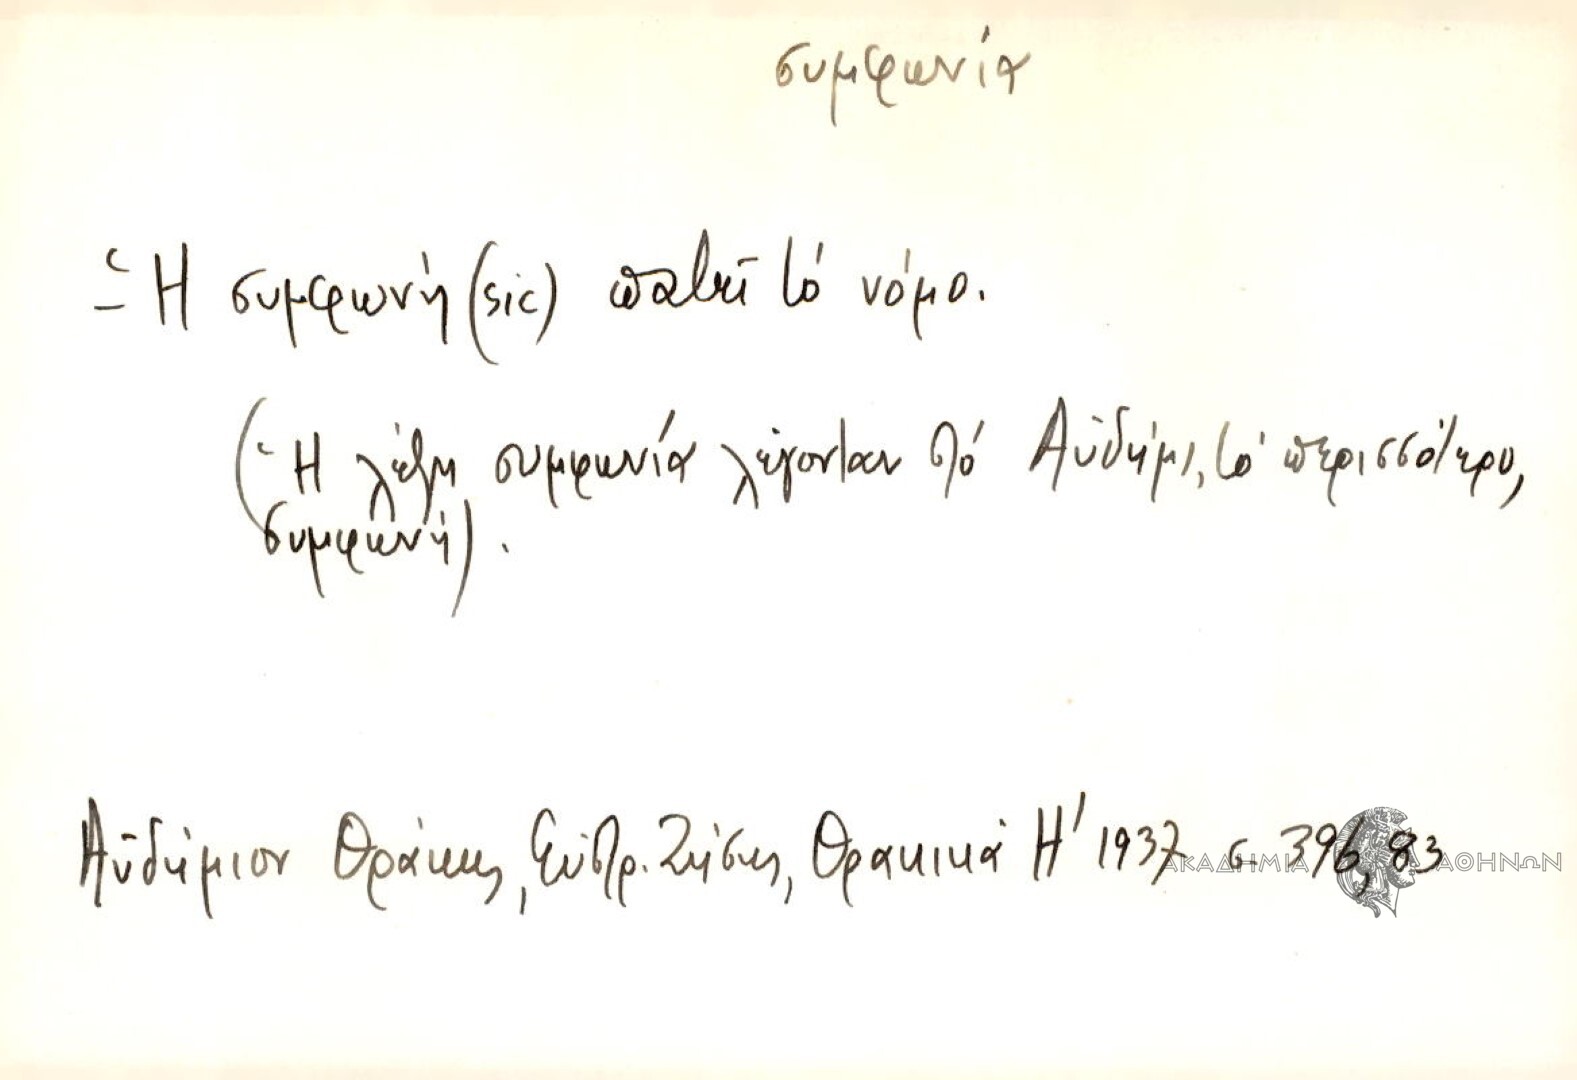 συμφωνία
Ἡ συμφωνή (sic) πατεῖ τό νόμο.
(Ἡ λέξη συμφωνία λέγονταν στό Αὐδήμι, τό περισσότερο,
συμφωνή).
Αὐδήμιον Θράκης, Εὐστρ. Ζήσης, Θρακικά Η' 1937 σ. 396, 83
ΑΚΑΔΗΜΙΑ ΑΘΗΝΩΝ